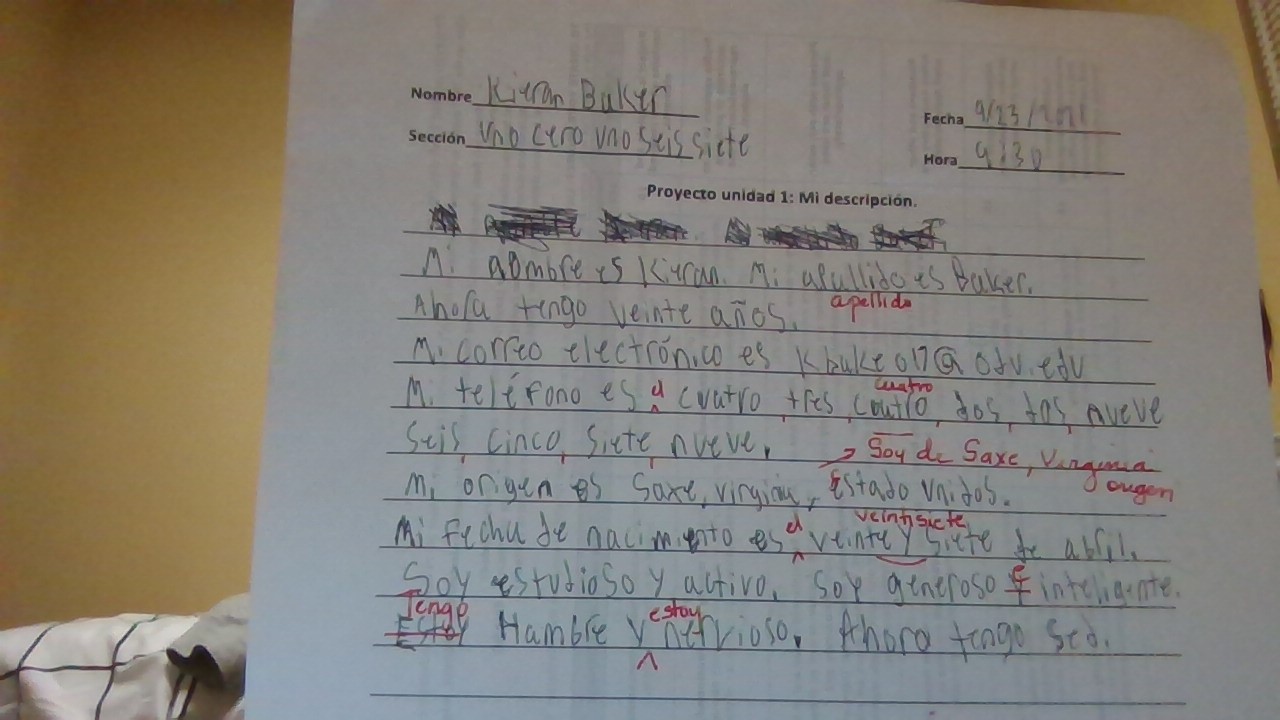 Nombre Kieran Baker
Fecha 9/23/2021
Sección Uno cero uno seis siete
Hora 9:30
Proyecto unidad 1: Mi descripción.
Mi nombre es Kieran. Mi apullido es Baker.
apellido
Ahora tengo veinte años.
Mi correo electrónico es Kbake017@odu.edu
cuatro
Mi teléfono es el cuatro, tres, coutro, dos, dos, nueve
seis, cinco, siete nueve.
Soy de Saxe, Virginia
origen
Mi origen es Saxe, virginia, Estado Unidos.
el veintisiete
Mi fecha de nacimiento es veinte y siete de abril.
Soy estudioso y activo. Soy generoso E inteligente.
Tengo estoy
Estoy Hambre y nervioso. Ahora tengo sed.